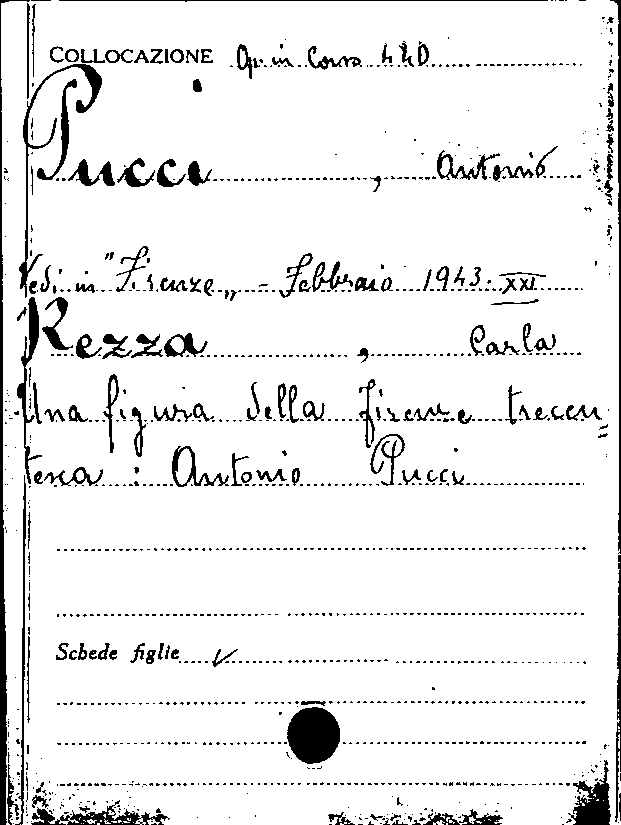 COLLOCAZIONE Op. in Corso 440
Pucci, Antonio
Vedi in "Firenze„ - Febbraio 1943. XXI
Rezza, Carla
Una figura della Firenze trecen
tesca : Antonio Pucci
Schede figlie